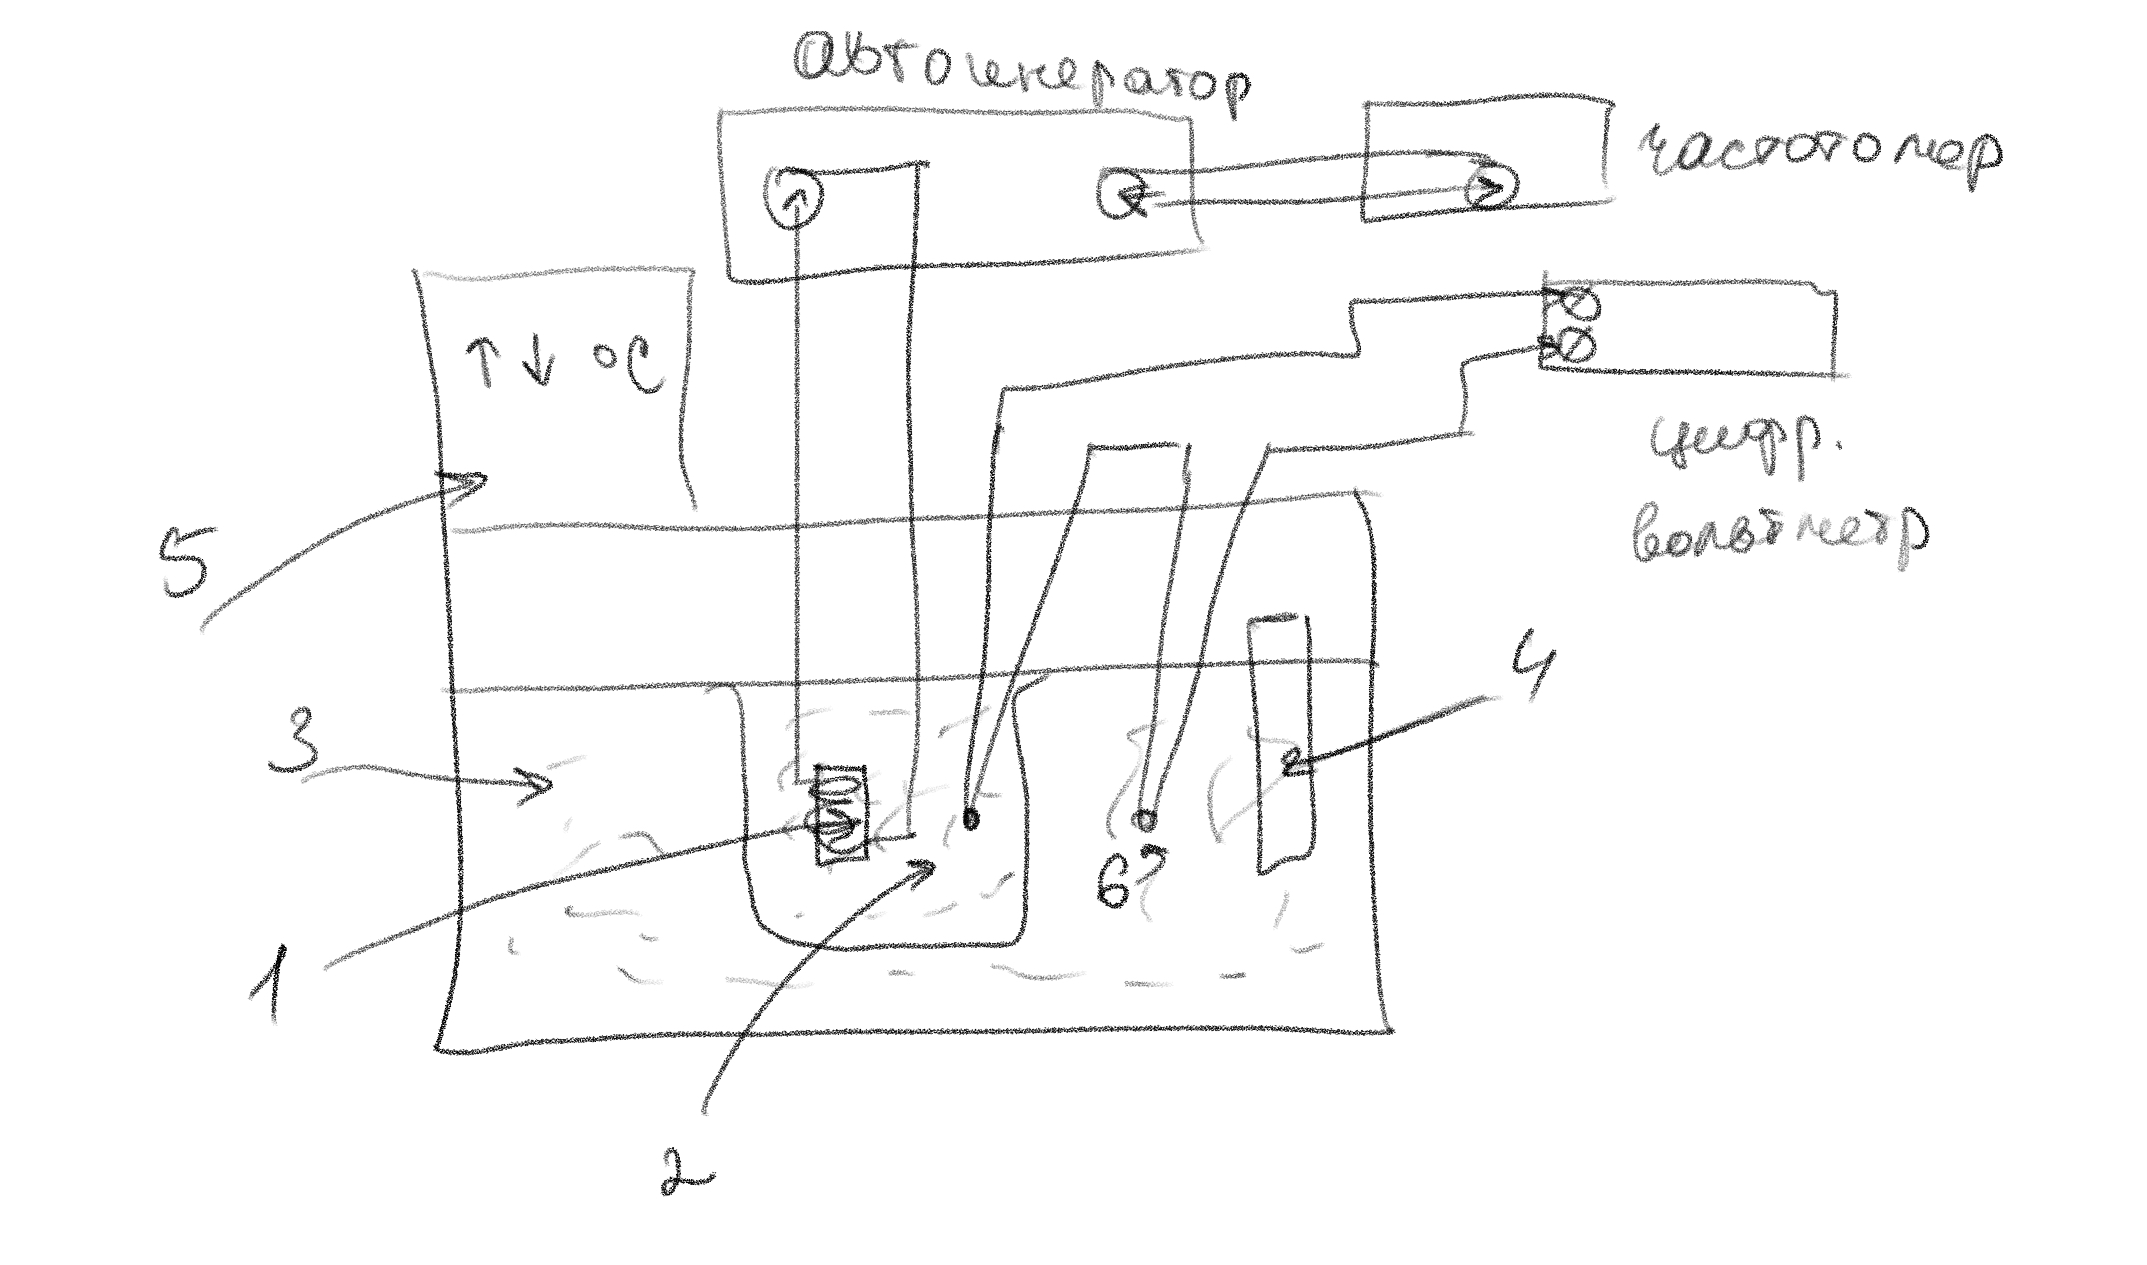 автогенератор
частотомер
↑ ↓ °C
цифр.
вольтметр
5
4
3
6
1
2